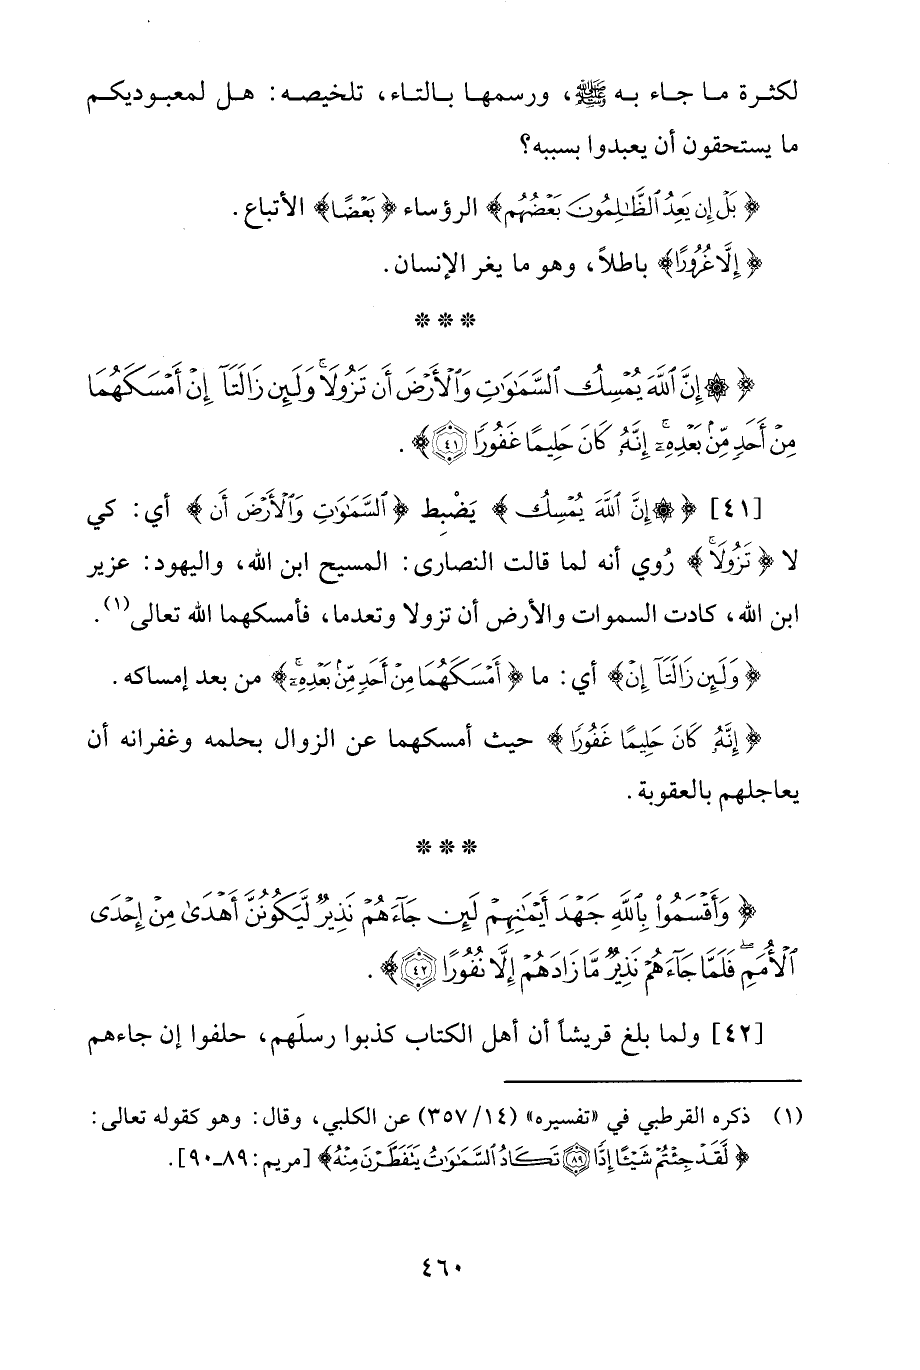 لكثرة ما جاء به ﷺ، ورسمها بالتاء، تلخيصه: هل لمعبوديكم
ما يستحقون أن يعبدوا بسببه؟
﴿بَلْ إِن يَعِدُ ٱلظَّٰلِمُونَ بَعْضُهُم﴾ الرؤساء ﴿بَعْضًا﴾ الأتباع.
﴿إِلَّا غُرُورًا﴾ باطلاً، وهو ما يغر الإنسان.
* * *
﴿۞ إِنَّ ٱللَّهَ يُمْسِكُ ٱلسَّمَٰوَٰتِ وَٱلْأَرْضَ أَن تَزُولَا ۚ وَلَئِن زَالَتَآ إِنْ أَمْسَكَهُمَا
مِنْ أَحَدٍ مِّنۢ بَعْدِهِۦٓ ۚ إِنَّهُۥ كَانَ حَلِيمًا غَفُورًا ﴿٤١﴾﴾.
[٤١] ﴿۞ إِنَّ ٱللَّهَ يُمْسِكُ﴾ يَضْبِط ﴿ٱلسَّمَٰوَٰتِ وَٱلْأَرْضَ أَن﴾ أي: كي
لا ﴿تَزُولَا ۚ﴾ رُوي أنه لما قالت النصارى: المسيح ابن الله، واليهود: عزير
ابن الله، كادت السموات والأرض أن تزولا وتعدما، فأمسكهما الله تعالى(١).
﴿وَلَئِن زَالَتَآ إِنْ﴾ أي: ما ﴿أَمْسَكَهُمَا مِنْ أَحَدٍ مِّنۢ بَعْدِهِۦٓ ۚ﴾ من بعد إمساكه.
﴿إِنَّهُۥ كَانَ حَلِيمًا غَفُورًا﴾ حيث أمسكهما عن الزوال بحلمه وغفرانه أن
يعاجلهم بالعقوبة.
* * *
﴿وَأَقْسَمُوا۟ بِٱللَّهِ جَهْدَ أَيْمَٰنِهِمْ لَئِن جَآءَهُمْ نَذِيرٌ لَّيَكُونُنَّ أَهْدَىٰ مِنْ إِحْدَى
ٱلْأُمَمِ ۖ فَلَمَّا جَآءَهُمْ نَذِيرٌ مَّا زَادَهُمْ إِلَّا نُفُورًا ﴿٤٢﴾﴾.
[٤٢] ولما بلغ قريشاً أن أهل الكتاب كذبوا رسلَهم، حلفوا إن جاءهم
(١) ذكره القرطبي في «تفسيره» (١٤/ ٣٥٧) عن الكلبي، وقال: وهو كقوله تعالى:
﴿لَّقَدْ جِئْتُمْ شَيْـًٔا إِدًّا ﴿٨٩﴾ تَكَادُ ٱلسَّمَٰوَٰتُ يَتَفَطَّرْنَ مِنْهُ﴾ [مريم: ٨٩-٩٠].
٤٦٠